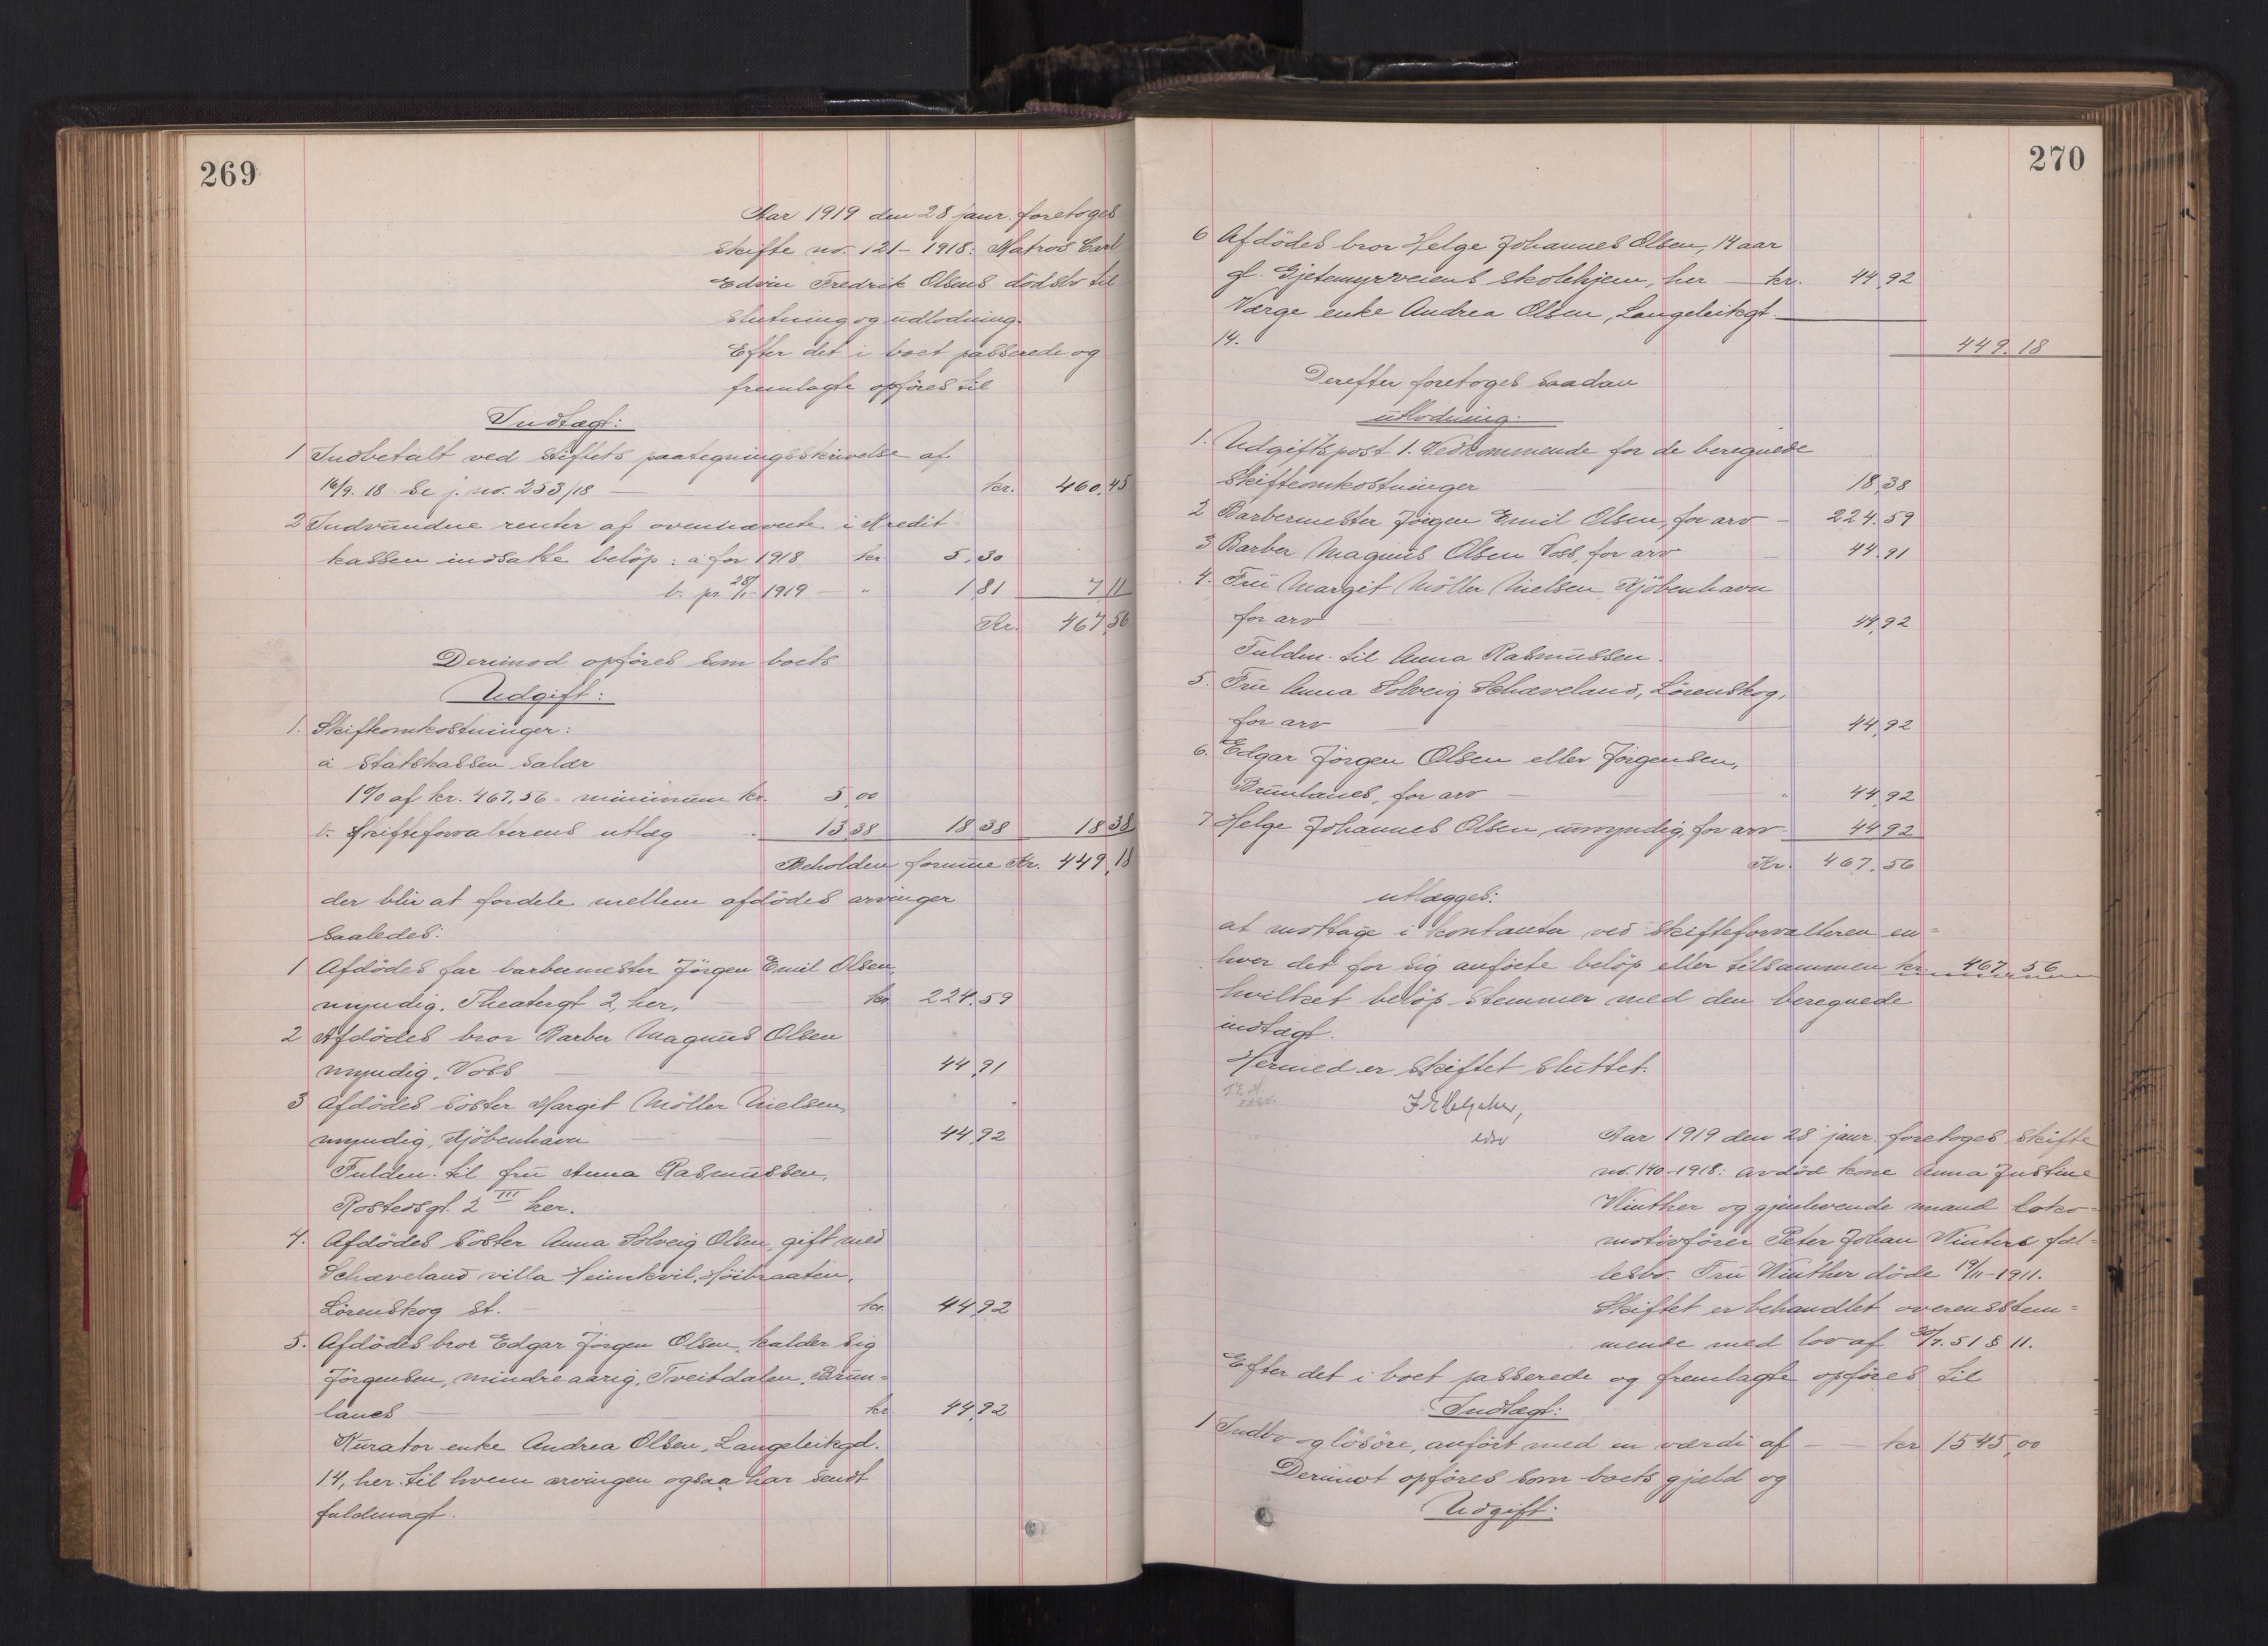 269
Aar 1919 den 28 janr. foretoges
skifte no. 121-1918: Matros Carl
Edvin Fredrik Olsens dödsbo til
slutning og udlodning.
Efter det i boet passerede og
fremlagte opföres til
Indtægt:
1 Indbetalt ved skiftets paategningsskrivelse af
16/9. 18 se j. no. 253/18 — kr. 460,45
2 Indvundne renter af ovennævnte i Kredit-
kassen indsatte belöp: a for 1918 kr. 5,30
b. pr. 28/1-1919 — " 1,81 7,11
Kr. 467,56
Derimod opföres som boets
Udgift:
1. Skifteomkostninger:
a Statskassen salær
1% af kr. 467,56 minimum kr. 5,00
b. skifteforvalterens utlæg 13,38 18,38 18,38
Beholden formue Kr. 449,18
der blir at fordele mellem afdödes arvinger
saaledes:
1 Afdödes far barbermester Jörgen Emil Olsen,
myndig, Theatergt 2, her, kr. 224.59
2 Afdödes bror Barber Magnus Olsen
myndig, Voss 44,91
3 Afdödes söster Margit Möller Nielsen,
myndig, Kjöbenhavn 44,92
Fuldm. til fru Anna Rasmussen,
Rostedsgt. 2 III her.
4. Afdödes söster Anna Solveig Olsen, gift med
Schæveland villa Heimkvil, Höibraaten,
Lörenskog st. kr. 44,92
5. Afdödes bror Edgar Jörgen Olsen, kalder sig
Jörgensen, mindreaarig, Tveitdalen, Brun-
lanes kr. 44,92
Kurator enke Andrea Olsen, Langeleikgd.
14, her. til hvem arvingen ogsaa har sendt
fuldmagt.
270
6 Afdödes bror Helge Johannes Olsen, 14 aar
gl. Gjetemyrveiens skolehjem, her — kr. 44,92
Værge enke Andrea Olsen, Langeleikgt.
14. 449.18
Derefter foretoges saadan
utlodning:
1. Udgiftspost 1. Vedkommende for de beregnede
skifteomkostninger 18,38
2 Barbermester Jörgen Emil Olsen, for arv - 224.59
3 Barber Magnus Olsen Voss, for arv 44.91
4. Fru Margit Möller Nielsen, Kjöbenhavn
for arv 44,92
Fuldm. til Anna Rasmussen.
5. Fru Anna Solveig Schæveland, Lörenskog,
for arv 44,92
6. Edgar Jörgen Olsen eller Jörgensen,
Brunlanes, for arv " 44,92
7 Helge Johannes Olsen, umyndig, for arv 44,92
Kr. 467.56
utlægges:
at mottage i kontanter ved skifteforvalteren en-
hver det for sig anförte belöp eller tilsammen kr. 467,56
hvilket belöp stemmer med den beregnede
indtægt.
Hermed er skiftet sluttet.
edsv
Aar 1919 den 28 janr. foretoges skifte
no. 140-1918: avdöd kone Anna Justine
Winther og gjenlevende mand loko-
motivförer Peter Johan Winters fæl-
lesbo. Fru Winther döde 19/11-1911.
Skiftet er behandlet overensstem-
mende med lov af 30/7. 51 § 11.
Efter det i boet passerede og fremlagte opföres til
Indtægt:
1 Indbo og lösöre, anfört med en værdi af — kr. 1545,00
Derimot opföres som boets gjæld og
Udgift: